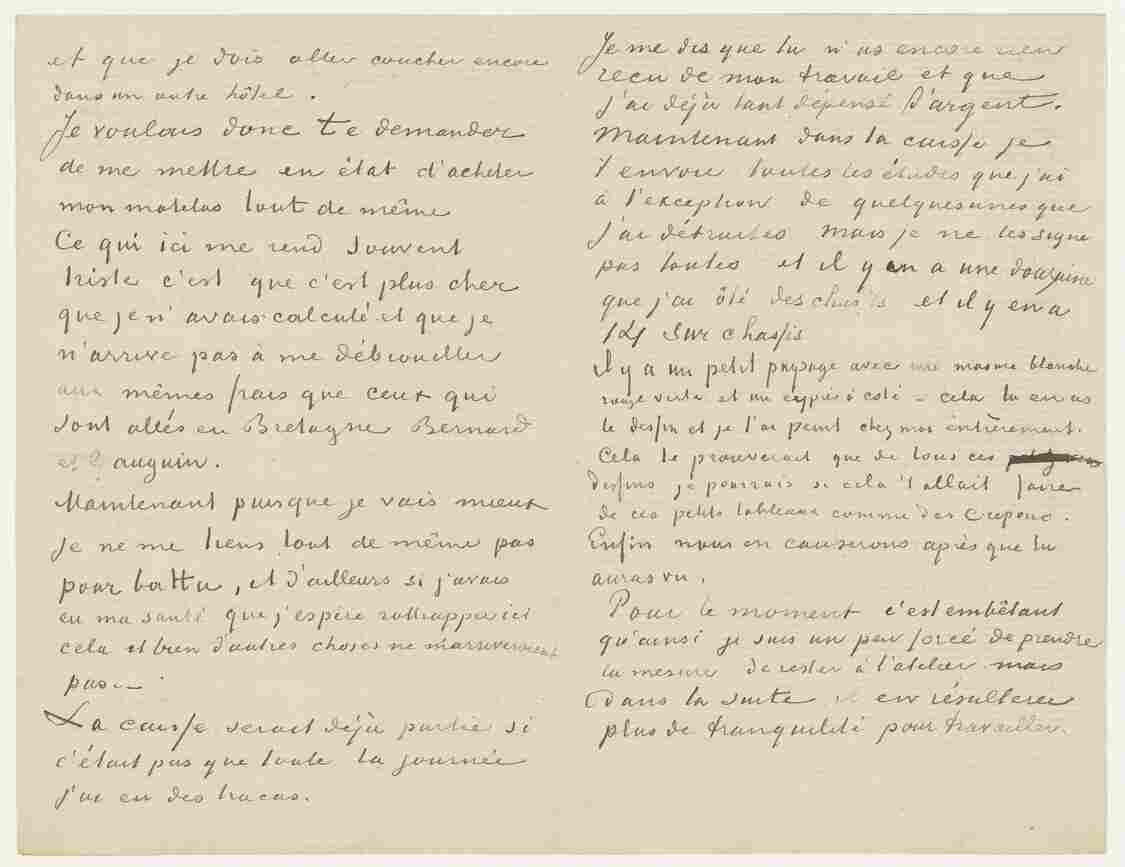 et que je dois aller coucher encore
dans un autre hôtel.
Je voulais donc te demander
de me mettre en état d'acheter
mon matelas tout de même
Ce qui ici me rend souvent
triste c'est que c'est plus cher
que je n'avais calculé et que je
n'arrive pas à me débrouiller
aux mêmes frais que ceux qui
sont allés en Bretagne Bernard
et Gauguin.
Maintenant puisque je vais mieux
je ne me tiens tout de même pas
pour battu, et d'ailleurs si j'avais
eu ma santé que j'espère rattrapper ici
cela et bien d'autres choses ne m'arriveraient
pas. —
La caisse serait déjà partie si
c'était pas que toute la journée
j'ai eu des tracas.
Je me dis que tu n'as encore rien
reçu de mon travail et que
j'ai déjà tant dépensé d'argent.
Maintenant dans la caisse je
t'envoie toutes les études que j'ai
à l'exception de quelquesunes que
j'ai détruites mais je ne les signe
pas toutes et il y en a une douzaine
que j'ai ôté des chassis et il y en a
14 sur chassis
Il y a un petit paysage avec une masure blanche
rouge verte et un cyprès à coté – cela tu en as
le dessin et je l'ai peint chez moi entièrement.
Cela te prouverait que de tous ces
dessins je pourrais si cela t'allait faire
de ces petits tableaux comme des crepons.
Enfin nous en causerons après que tu
auras vu.
Pour le moment c'est embêtant
qu'ainsi je suis un peu forcé de prendre
la mesure de rester à l'atelier mais
Dans la suite il en résultera
plus de tranquilité pour travailler.